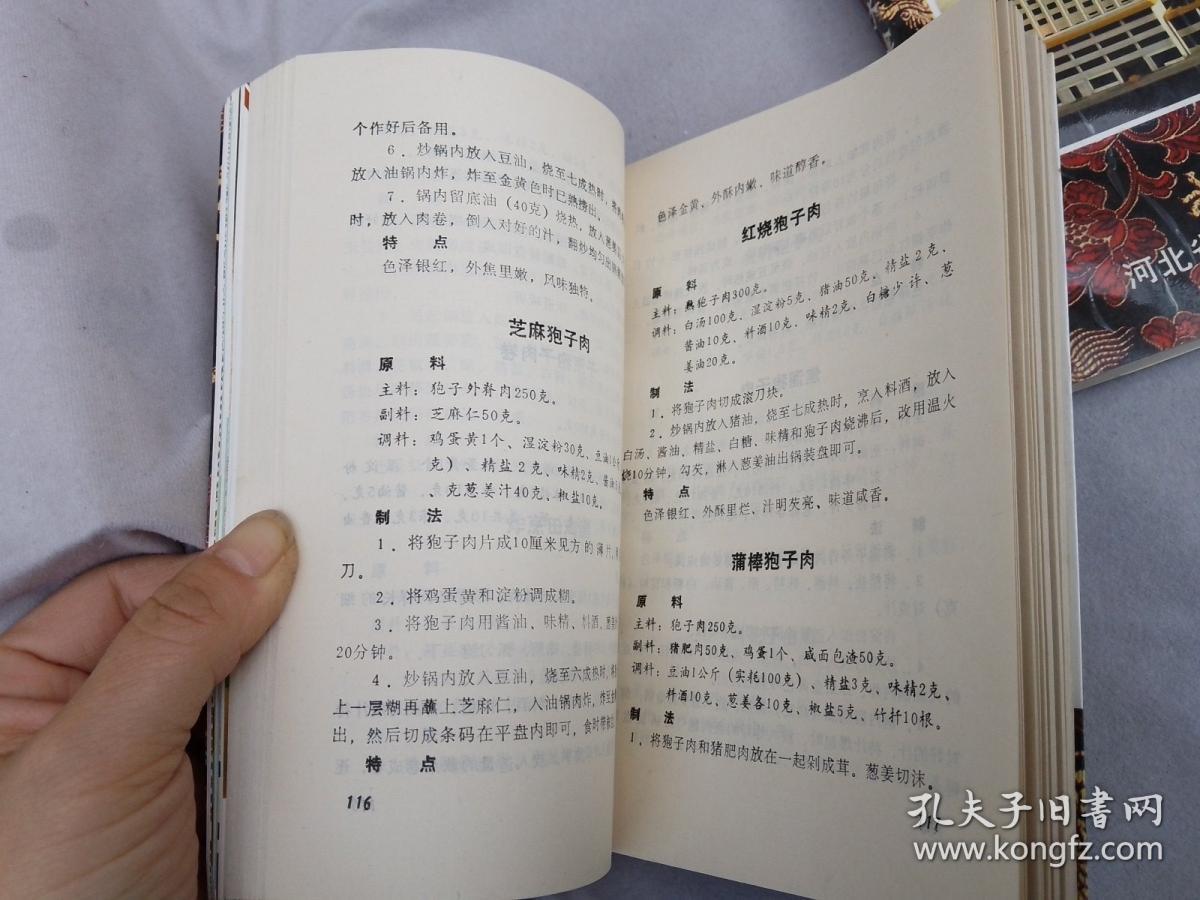 个作好后备用。
6．炒锅内放入豆油，烧至七成热时，
放入油锅内炸，炸至金黄色时已熟捞出。
7．锅内留底油（40克）烧热，放入葱
时，放入肉卷，倒入对好的汁，翻炒均匀出锅
特　点
色泽银红，外焦里嫩，风味独特。
芝麻狍子肉
原　料
主料：狍子外脊肉250克。
副料：芝麻仁50克。
调料：鸡蛋黄1个、湿淀粉30克、豆油1公斤
克）、精盐2克、味精2克、酱油
、克葱姜汁40克，椒盐10克。
制　法
1．将狍子肉片成10厘米见方的薄片，
刀。
2．将鸡蛋黄和淀粉调成糊。
3．将狍子肉用酱油、味精、料酒、葱
20分钟。
4．炒锅内放入豆油，烧至六成热时，
上一层糊再蘸上芝麻仁，入油锅肉炸，炸至
出，然后切成条码在平盘内即可，食时带
特　点
116
色泽金黄、外酥内嫩、味道醇香。
红烧狍子肉
原　料
主料：熟狍子肉300克。
调料：白汤100克、湿淀粉5克、猪油50克、精盐2克、
酱油10克、料酒10克、味精2克、白糖少许、葱
姜油20克。
制　法
1．将狍子肉切成滚刀块。
2．炒锅内放入猪油，烧至七成热时，烹入料酒，放入
白汤、酱油、精盐、白糖、味精和狍子肉烧沸后，改用温火
烧10分钟，勾芡，淋入葱姜油出锅装盘即可。
特　点
色泽银红、外酥里烂、汁明芡亮、味道咸香。
蒲棒狍子肉
原　料
主料：狍子肉250克。
副料：猪肥肉50克、鸡蛋1个、咸面包渣50克。
调料：豆油1公斤（实耗100克）、精盐3克、味精2克、
料酒10克、葱姜各10克、椒盐5克、竹扦10根。
制　法
1．将狍子肉和猪肥肉放在一起剁成茸。葱姜切沫。
河北
孔夫子旧书网
www.kongfz.com